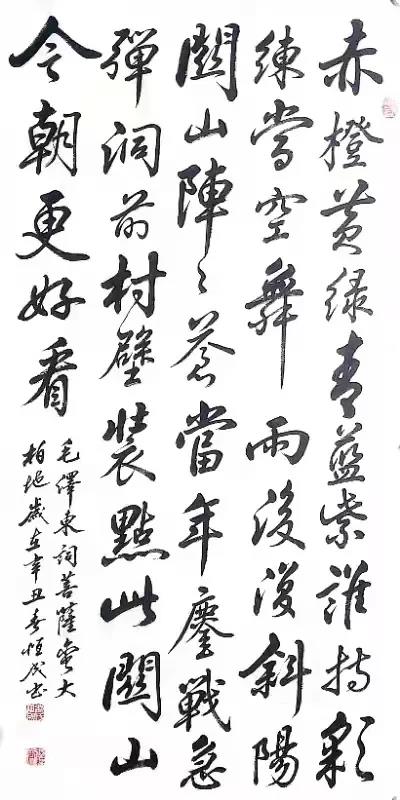 赤橙黄绿青藍紫誰持彩
練當空舞雨後復斜陽
關山陣々蒼當年鏖戰急
彈洞前村壁裝點此關山
今朝更好看
毛澤東詞菩薩蛮大
柏地歲在辛丑春恒成书